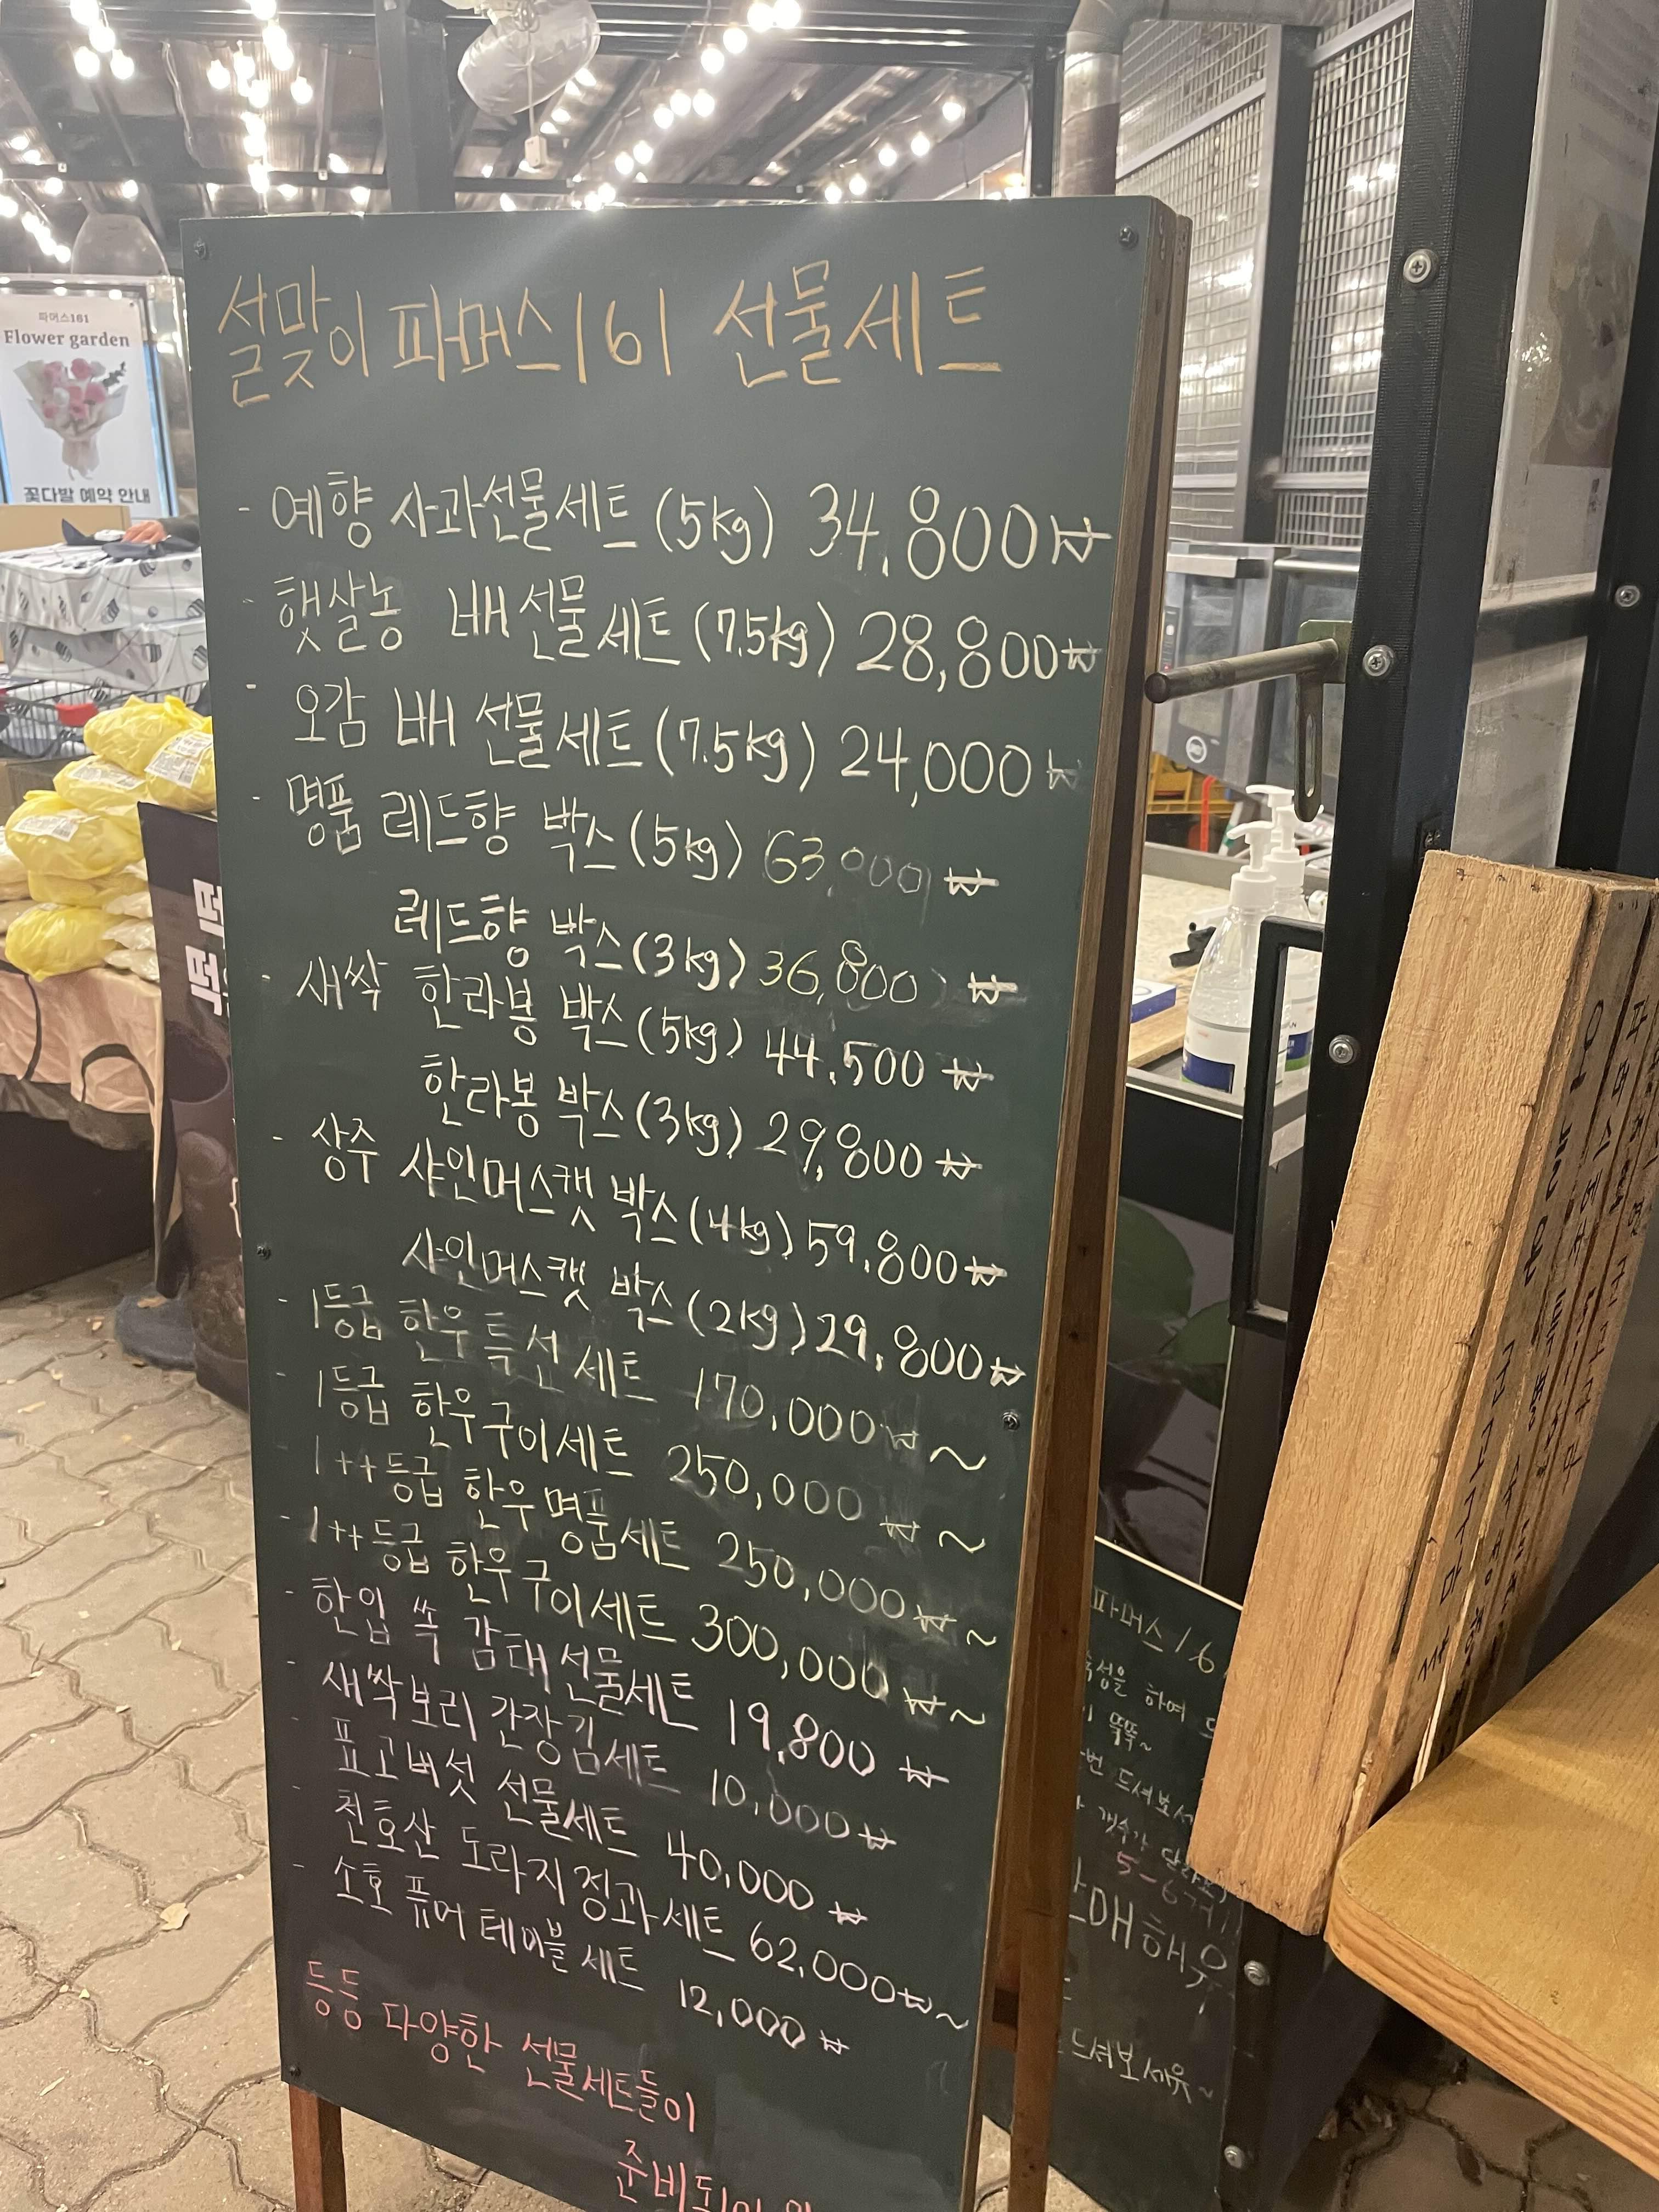 설맞이 파머스161 선물세트
- 예향 사과선물세트 (5kg) 34,800₩
- 햇살농 배 선물세트 (7.5kg) 28,800₩
- 오감 배 선물세트 (7.5kg) 24,000₩
- 명품 레드향 박스 (5kg) 63,000 ₩
레드향 박스 (3kg) 36,800 ₩
- 새싹 한라봉 박스 (5kg) 44,500 ₩
한라봉 박스 (3kg) 29,800 ₩
- 상주 샤인머스캣 박스 (4kg) 59,800₩
샤인머스캣 박스 (2kg) 29,800₩
- 1등급 한우 특선 세트 170,000₩ ~
- 1등급 한우구이세트 250,000 ₩ ~
- 1++등급 한우 명품세트 250,000₩ ~
- 1++등급 한우구이세트 300,000 ₩~
- 한입 쏙 감태 선물세트 19,800 ₩
- 새싹보리 간장김세트 10,000 ₩
- 표고버섯 선물세트 40,000 ₩
- 천호산 도라지정과세트 62,000₩~
- 소호 퓨어 테이블 세트 12,000 ₩
등등 다양한 선물세트들이
파머스161
Flower garden
꽃다발 예약 안내
파머스16
하여
뚝뚝~
드셔보세
갯수가
5-6개
드셔보세유~